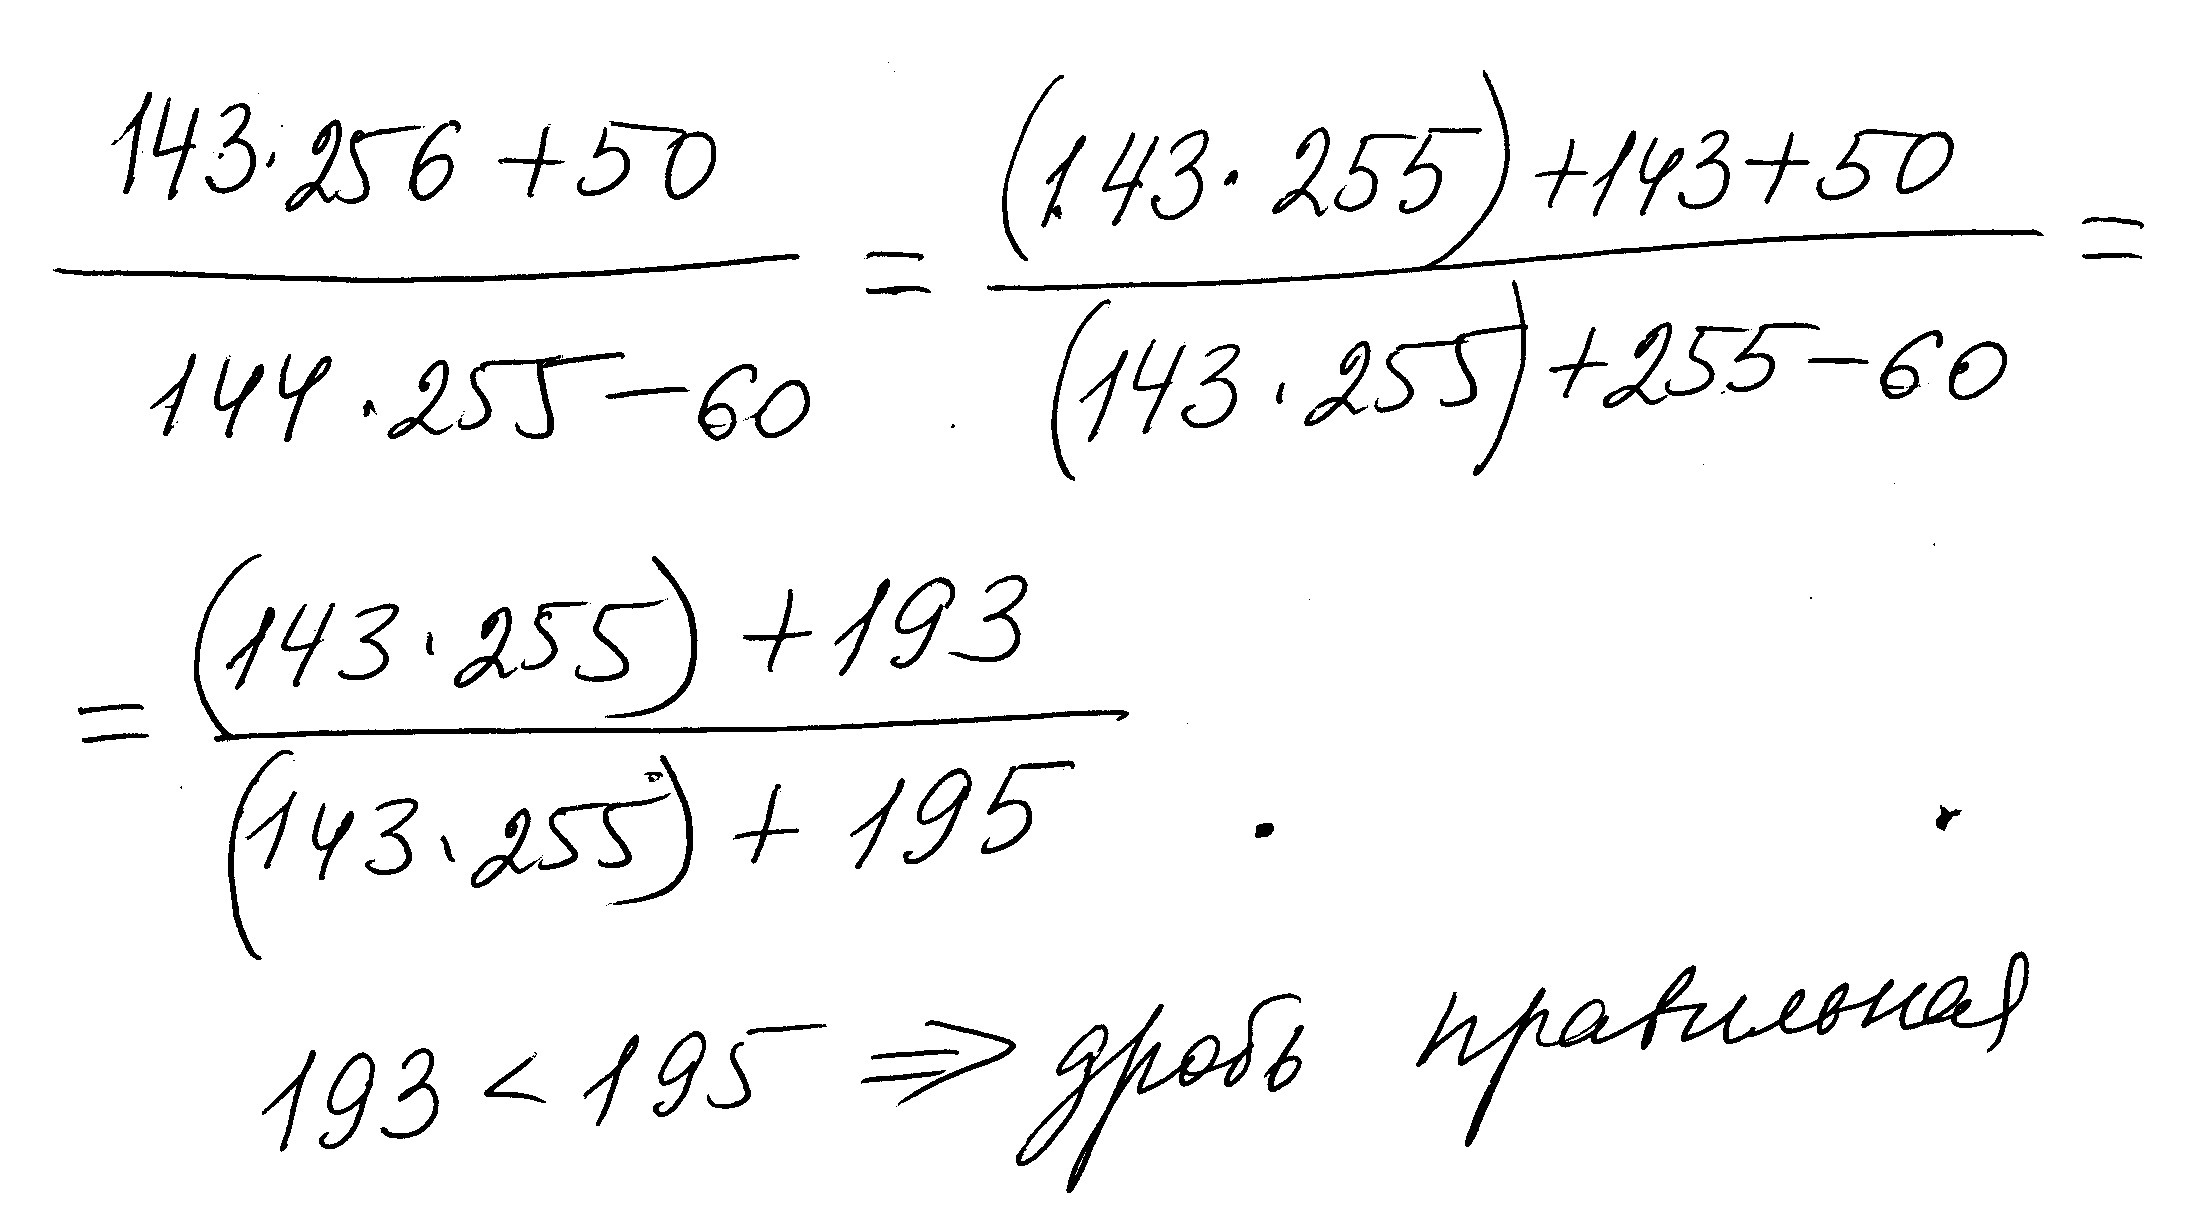 143·256+50
144·255-60
=
(143·255)+143+50
(143·255)+255-60
=
=
(143·255)+193
(143·255)+195
193<195 ⇒ дробь правильная